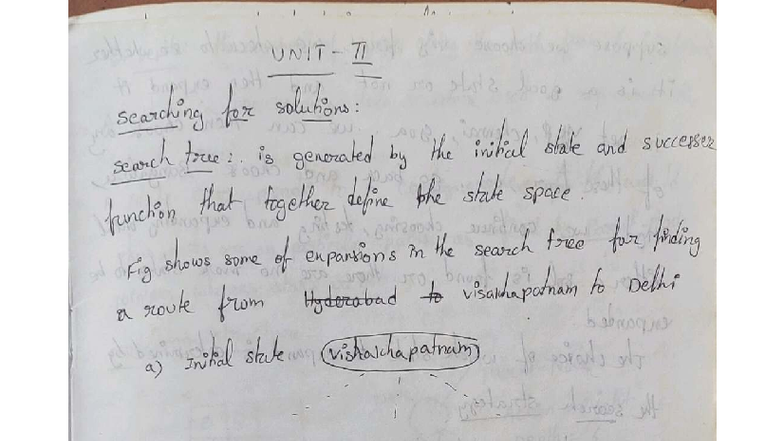 UNIT - II
searching for solutions:
search tree: is generated by the initial state and successer
function that together define the state space.
Fig shows some of expansions in the search tree for finding
a route from Hyderabad to visakhapatnam to Delhi
a) Initial state vishakhapatnam